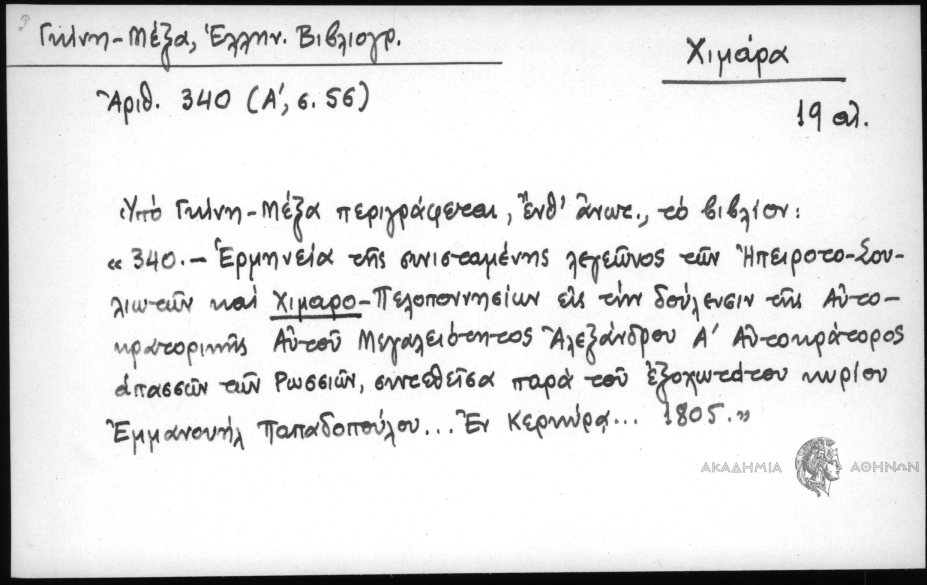 Γκίνη-Μέξα, Ἑλλην. Βιβλιογρ.
Χιμάρα
Ἀριθ. 340 (Α', σ. 56)
19 αἰ.
Ὑπὸ Γκίνη-Μέξα περιγράφεται, ἔνθ' ἄνωτ., τὸ βιβλίον:
« 340.- Ἑρμηνεία τῆς συνισταμένης λεγεῶνος τῶν Ἠπειροτο-Σου-
λιωτῶν καὶ Χιμαρο-Πελοποννησίων εἰς τὴν δούλευσιν τῆς Αὐτο-
κρατορικῆς Αὐτοῦ Μεγαλειότητος Ἀλεξάνδρου Α' Αὐτοκράτορος
ἁπασσῶν τῶν Ρωσσιῶν, συντεθεῖσα παρὰ τοῦ ἐξοχωτάτου κυρίου
Ἐμμανουὴλ Παπαδοπούλου... Ἐν Κερκύρᾳ... 1805.»
ΑΚΑΔΗΜΙΑ ΑΘΗΝΩΝ